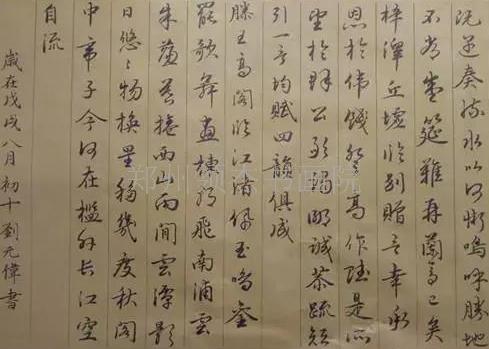 既遇奏流水以何慚嗚呼勝地
不常盛筵難再蘭亭已矣
梓澤丘墟臨別贈言幸承
恩於偉餞登高作賦是所
望於群公敢竭鄙誠恭疏短
引一言均賦四韻俱成
滕王高閣臨江渚佩玉鳴鸞
罷歌舞畫棟朝飛南浦雲
朱簾暮捲西山雨閒雲潭影
日悠々物換星移幾度秋閣
中帝子今何在檻外長江空
自流
歲在戊戌八月初十劉元偉書
郑州书画院